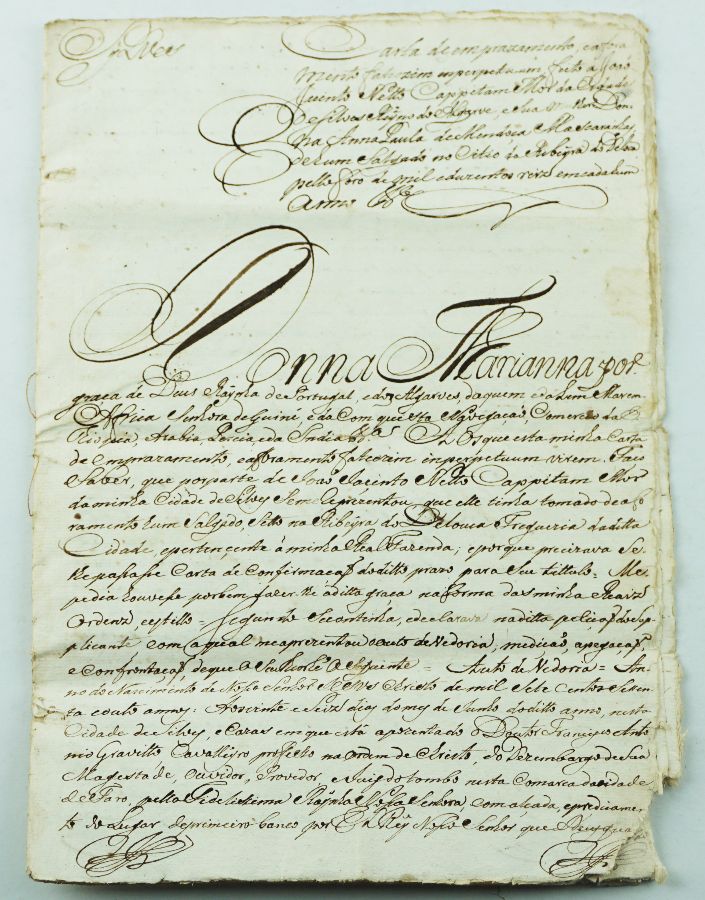 Carta de emprazamento, e afora
mento fateozim imperpetuum, feito a João
Jacinto Netto Cappitam Mor da Cidade
de Silves Reyno do Algarve, e sua mulher Don
na Anna Paula de Mendoça Mascaranhas
de hum Salgado no Citio da Ribeyra do
pello foro de mil eduzentos reis em cada hum
anno
Donna Marianna por
graça de Deus Raynha de Portugal, e dos Algarves, daquem e dalem Mar em
Africa Senhora de Guine, e da Comquista Navegação, Comercio da
Ethiopia, Arabia Percia, e da India &ª. Aos que esta minha Carta
de emprazamento, e aforamento fateozim imperpetuum virem. Faço
Saber, que por parte de João Jacinto Netto Cappitam Mor
da minha Cidade de Silves Seme aprezentou que elle tinha tomado de afo
ramento hum Salgado, Sitto na Ribeyra do Freguezia da ditta
Cidade, e pertençente á minha Real Fazenda; e porque precizava Se
lhe passasse Carta de Confirmação do ditto prazo para Seu tittulo = Me
pedia houvesse por bem fazer lhe a ditta graça na forma das minhas Reaiz
Ordenz, e estillo = Segundo Secontinha, e declarava na ditta petição do Sup
plicante com a qual me aprezentou o auto de Vedoria, medição, apegação
e Confrontação de que o Seu theor he o Siguinte = Auto de Vedoria = An
no do Nascimento de Nosso Senhor Christo de mil Sete Centos Secen
ta e outo annos: Aos vinte e Seis dias do mes de Junho do ditto anno, nesta
Cidade de Silves, e Cazas em que está apozentado o Doutor Francisco Anto
nio Gravitto Cavalleyro professo na ordem de Christo, do Dezembargo de Sua
Magestade, Ouvidor, Provedor, e Juis do tombo nesta Comarca da Cidade
de Faro, pella Fidelissima Raynha Nossa Senhora Com alçada, e predicamen
to do Lugar de primeiro banco por El Rey Nosso Senhor que Deus guar